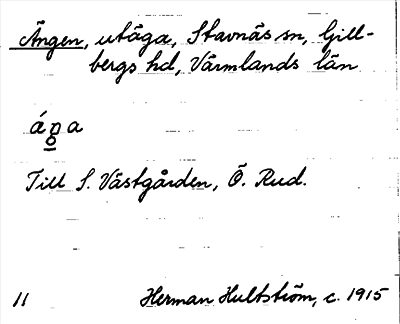 Ängen, utäga, Stavnäs sn, Gill-
bergs hd, Värmlands län
Till S. Västgården, Ö. Rud.
11 Herman Hultström, c. 1915